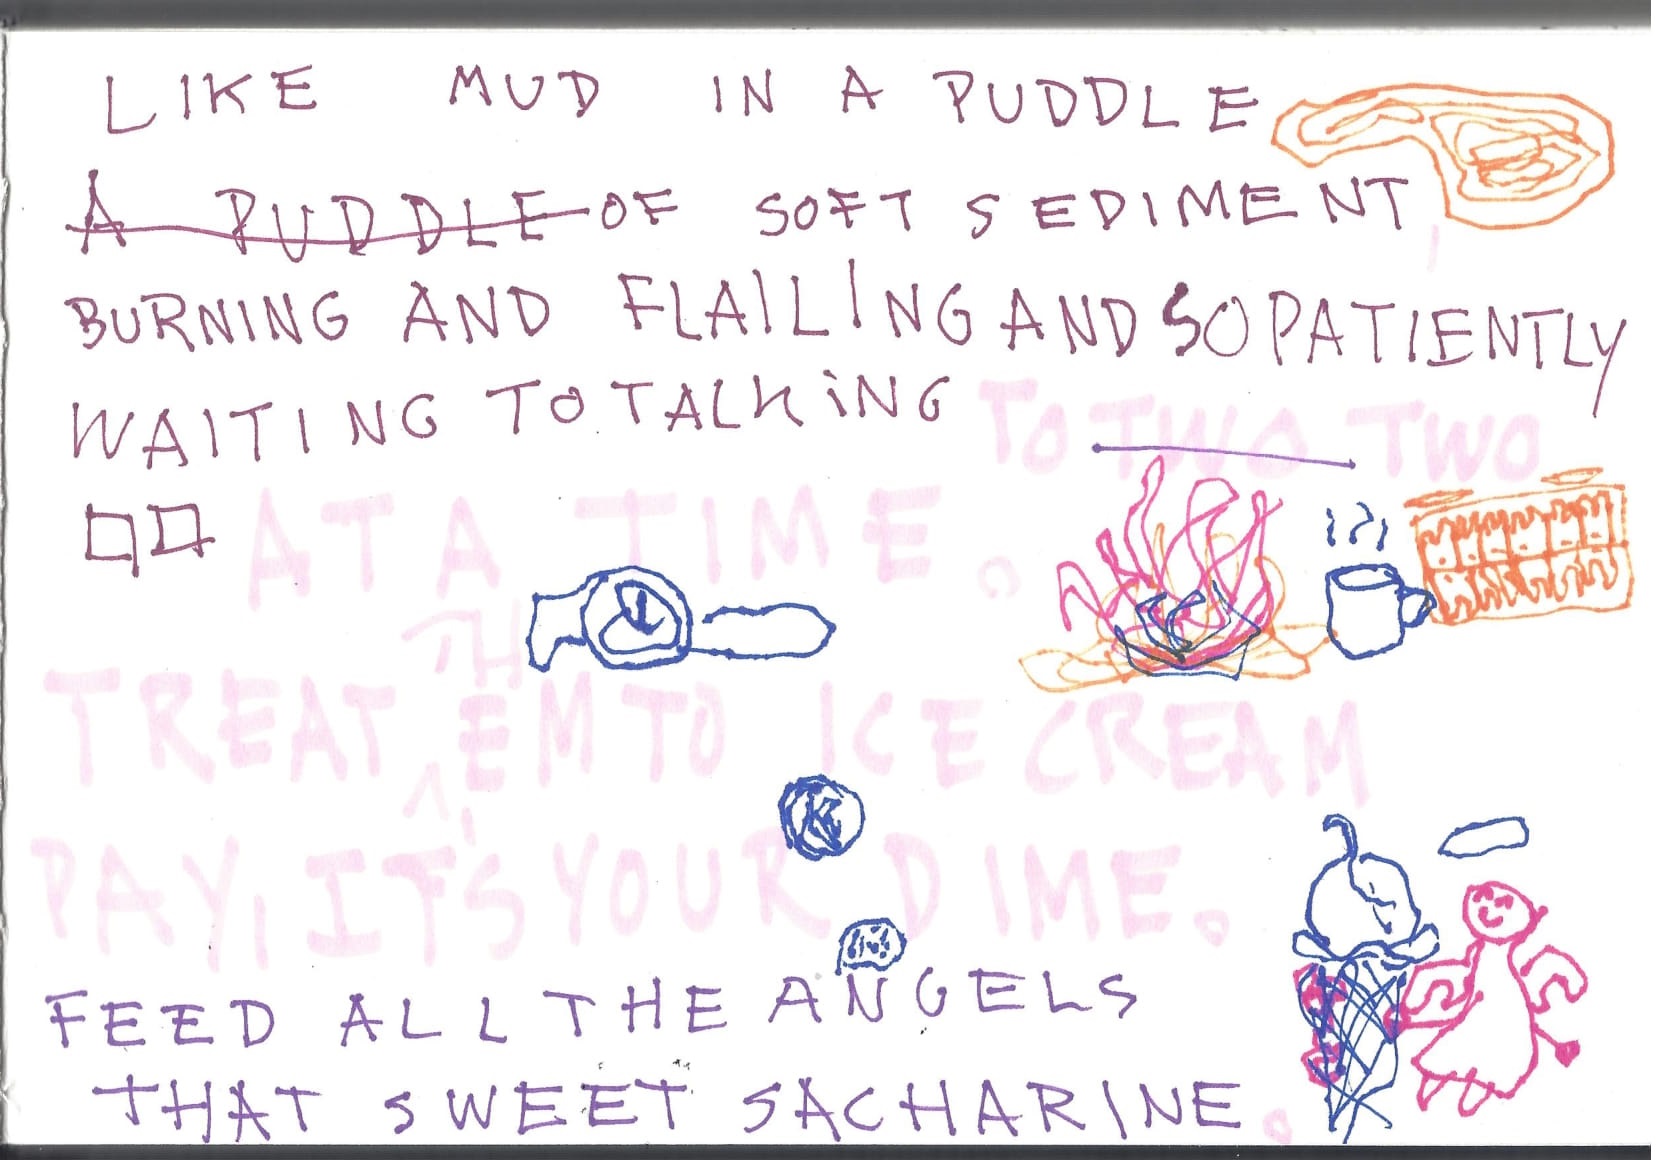 LIKE MUD IN A PUDDLE
A PUDDLE OF SOFT SEDIMENT,
BURNING AND FLAILING AND SO PATIENTLY
WAITING TO TALKiNG TO TWO TWO
AT A TIME.
TH
TREAT ^ EM TO ICE CREAM
PAY, IT'S YOUR DIME.
FEED ALL THE ANGELS
THAT SWEET SACHARINE.